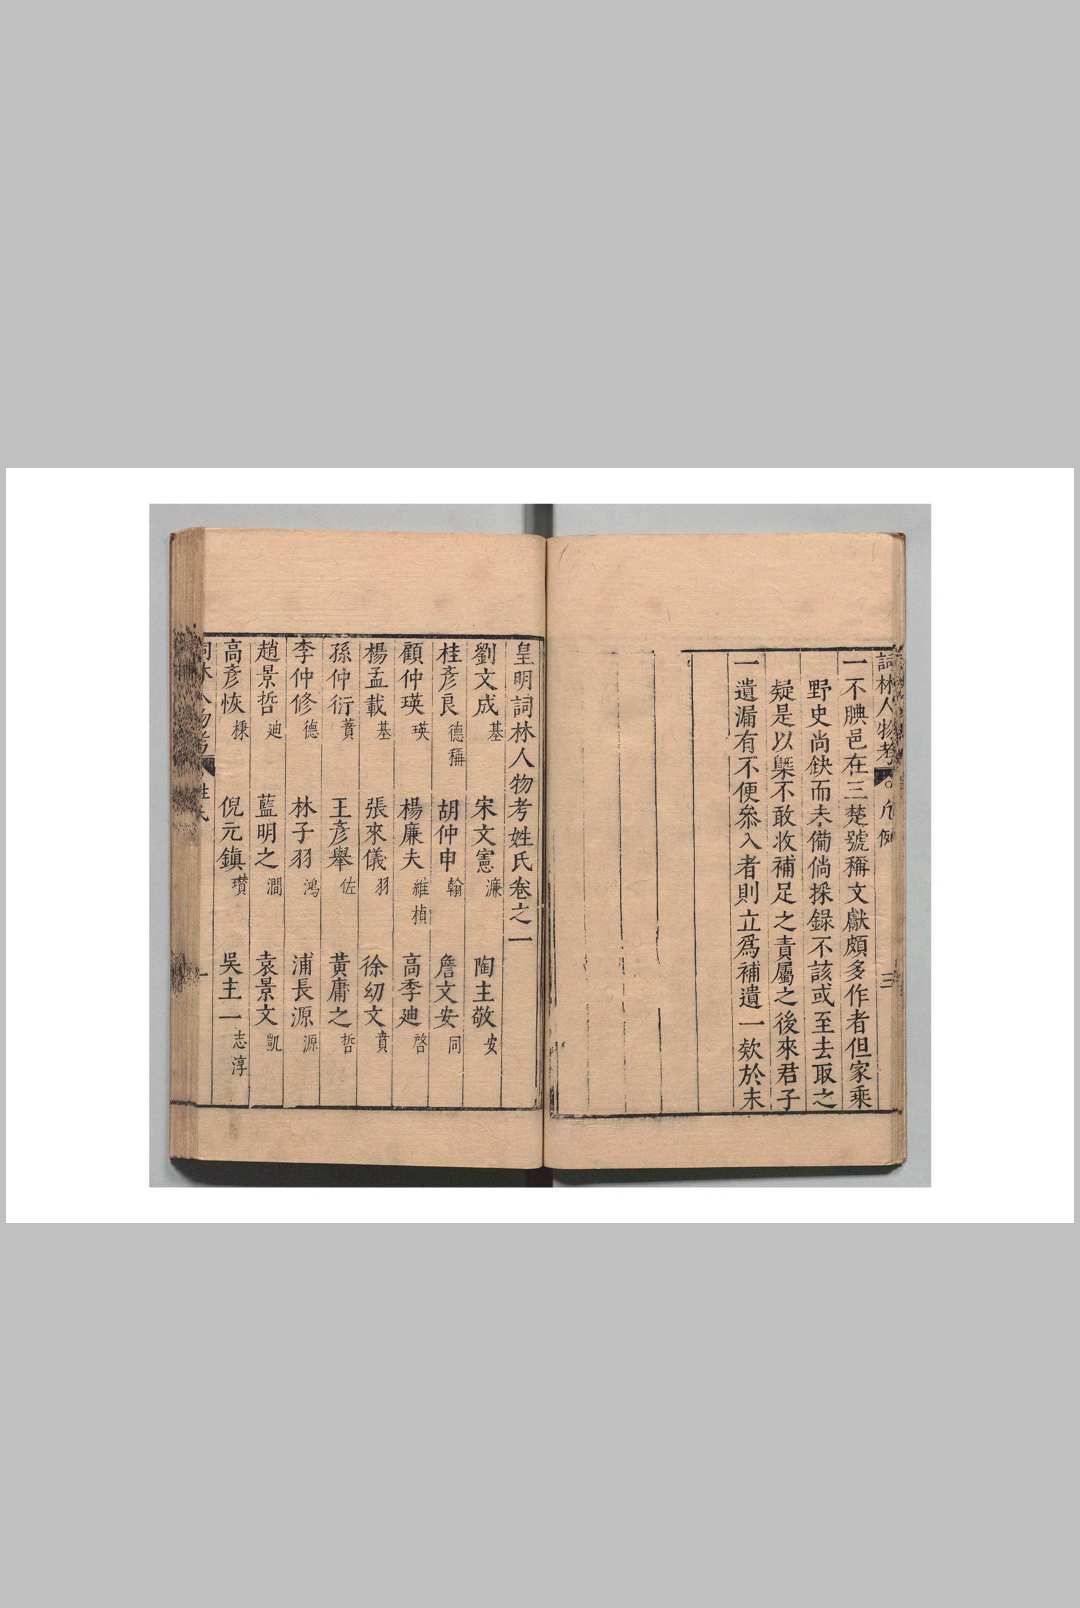 詞林人物考 凡例 三
一不腆邑在三楚號稱文獻頗多作者但家乘
野史尚缺而未備倘採錄不該或至去取之
疑是以槩不敢收補足之責屬之後來君子
一遺漏有不便叅入者則立爲補遺一欵於末
皇明詞林人物考姓氏卷之一
劉文成基 宋文憲濂 陶主敬安
桂彦良德稱 胡仲申翰 詹文安同
顧仲瑛瑛 楊廉夫維楨 高季廸啓
楊孟載基 張來儀羽 徐幼文賁
孫仲衍蕡 王彦舉佐 黃庸之哲
李仲修德 林子羽鴻 浦長源源
趙景哲廸 藍明之澗 袁景文凱
高彦恢棅 倪元鎮瓚 吳主一志淳
詞林人物考 姓氏 一